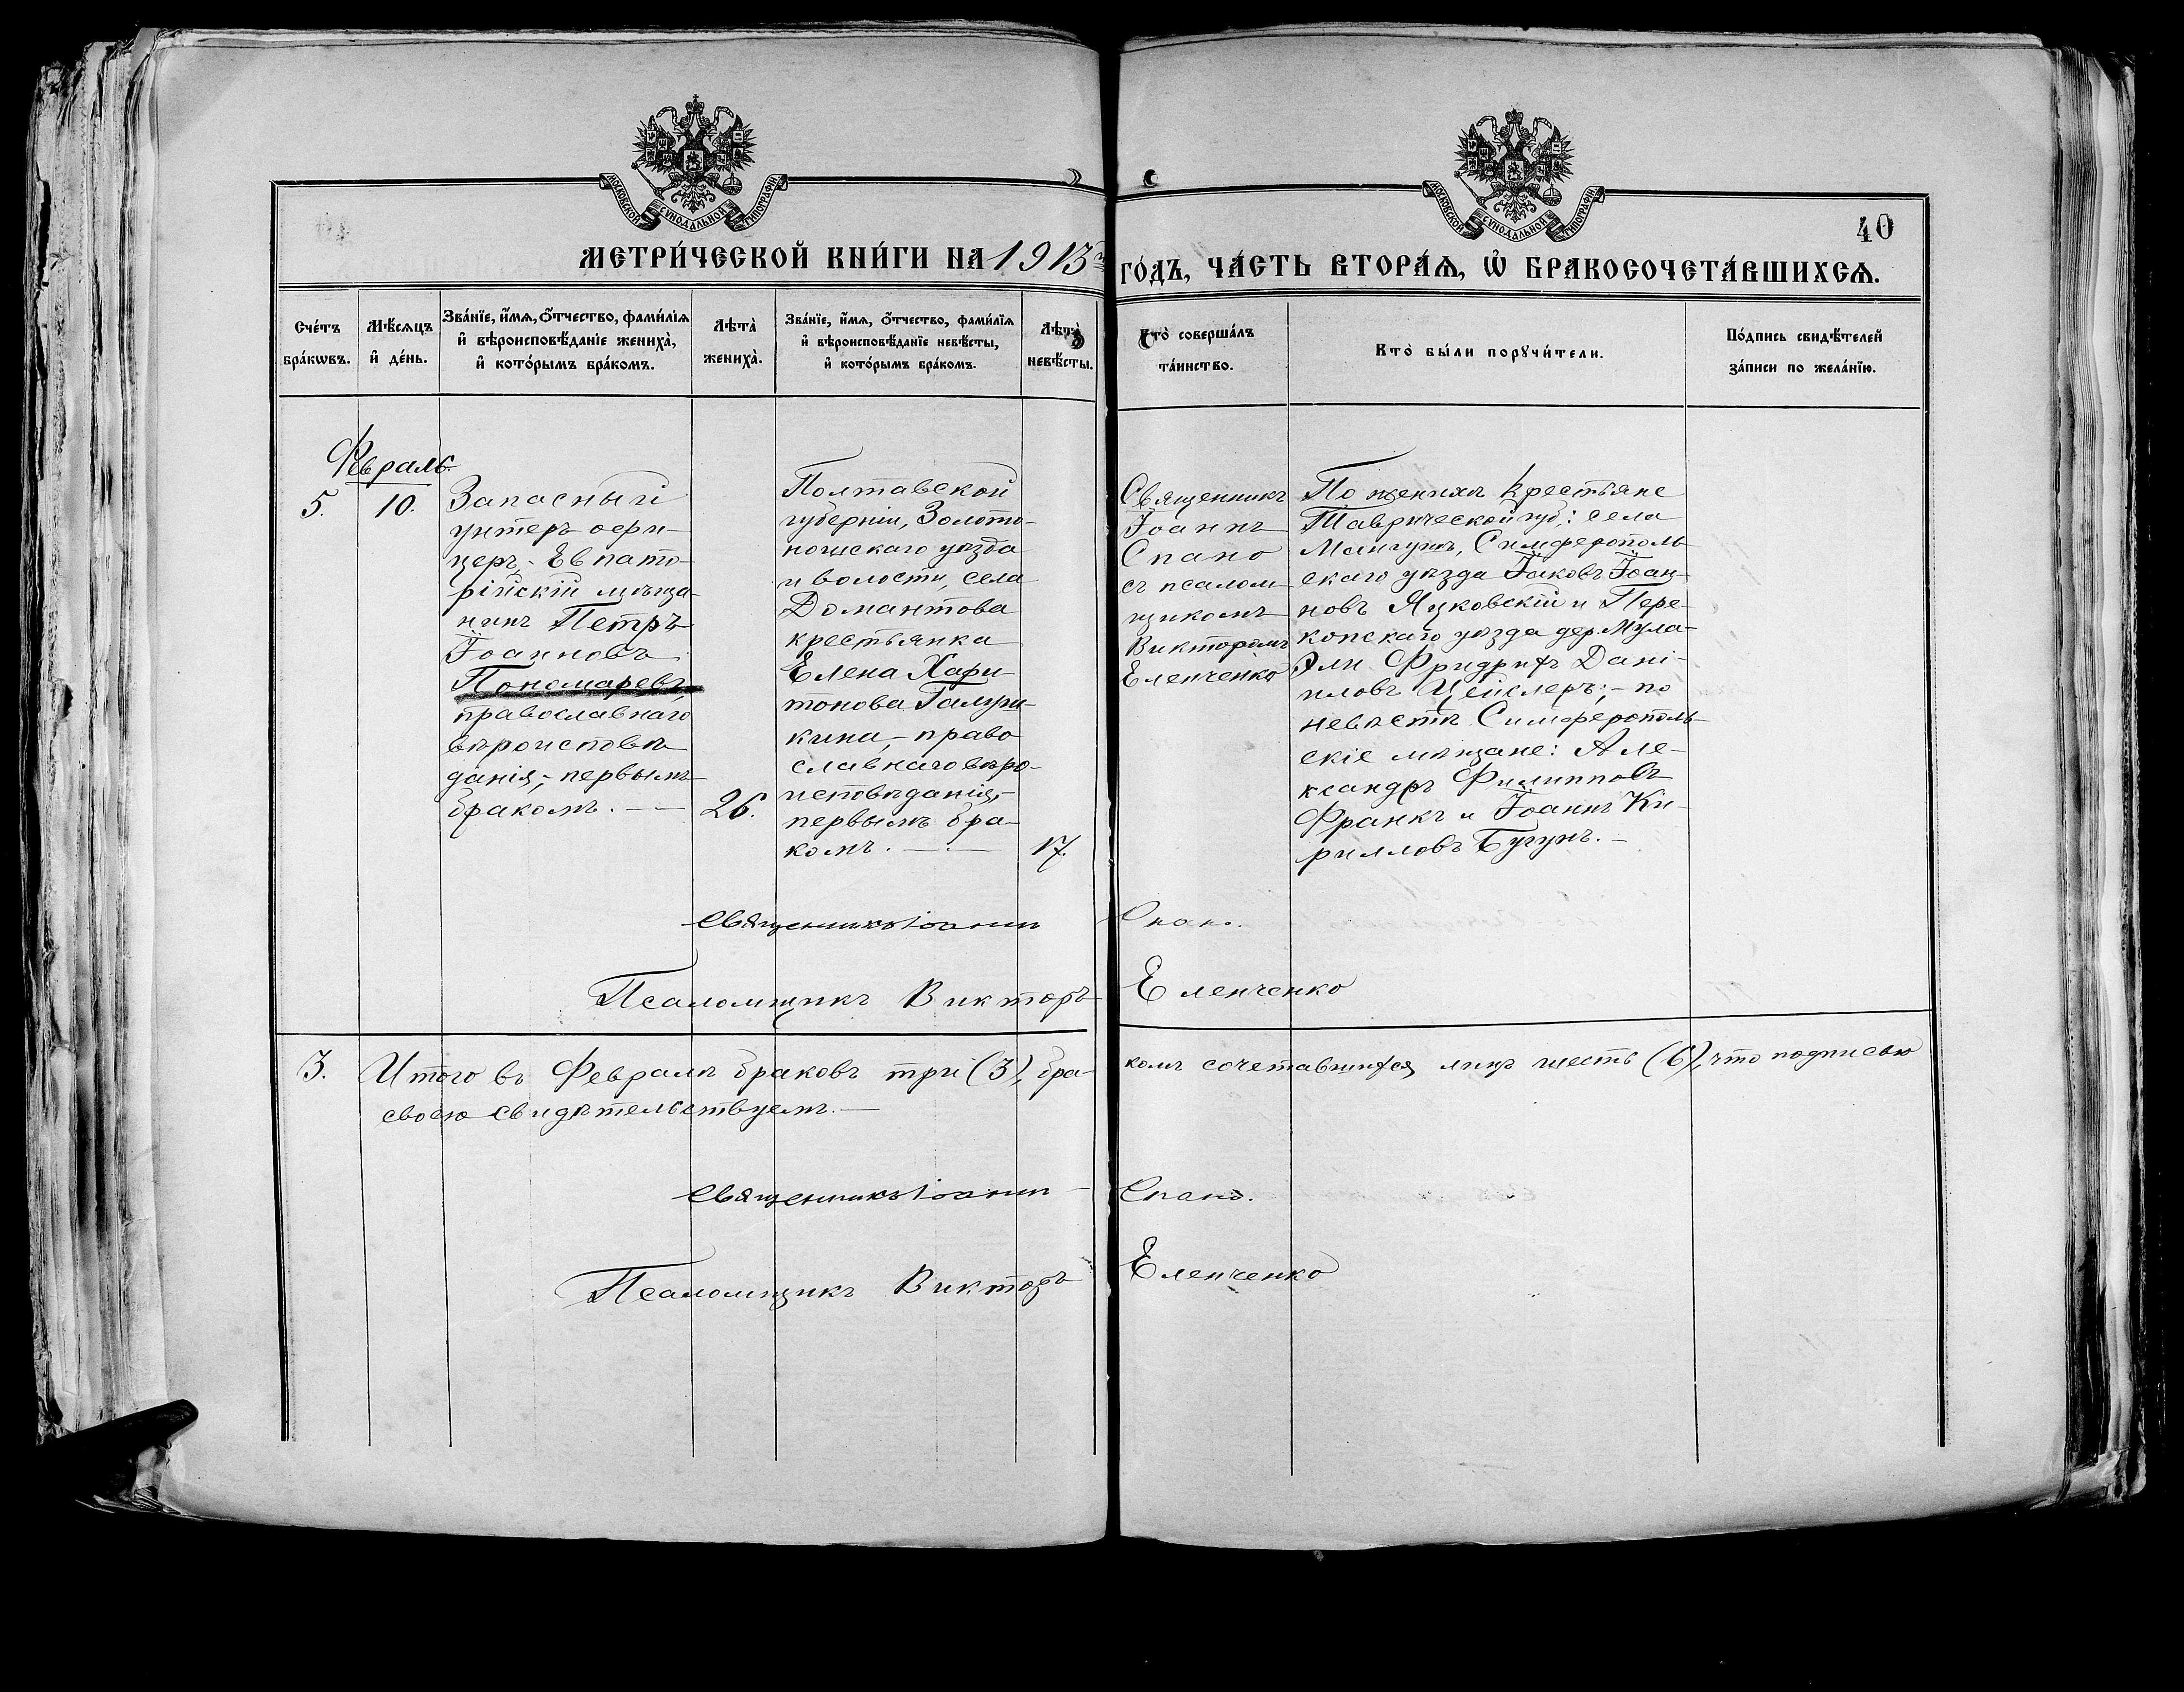 МОСКОВСКОЙ СѴНОДАЛЬНОЙ ТИПОГРАФІИ
МОСКОВСКОЙ СѴНОДАЛЬНОЙ ТИПОГРАФІИ
40
МЕТРИ́ЧЕСКОЙ КНИ́ГИ НА 1913
ГО́ДЪ, ЧА́СТЬ ВТОРА́Ѧ, Ѡ БРАКОСОЧЕТА́ВШИХСѦ.
Сче́тъ
бра́кѡвъ.
Мѣ́сѧцъ
и҆ де́нь.
Зва́нїе, и҆́мѧ, ѻ҆́тчество, фами́лїѧ
и҆ вѣроисповѣ́данїе жениха̀,
и҆ кото́рымъ бра́комъ.
Лѣта̀
жениха̀.
Зва́нїе, и҆́мѧ, ѻ҆́тчество, фами́лїѧ
и҆ вѣроисповѣ́данїе невѣ́сты,
и҆ кото́рымъ бра́комъ.
Лѣта̀
невѣ́сты.
Кто̀ соверша́лъ
та́инство.
Кто̀ бы́ли порꙋчи́тели.
По́дпись свидѣ́телей
за́писи по жела́нїю.
Февраль.
5.
10.
Запасный
унтеръ офи-
церъ,- Евпато-
рійскій мѣща-
нинъ Петръ
Іоанновъ
Пономаревъ,
православнаго
вѣроисповѣ-
данія,- первымъ
бракомъ.
26.
Полтавской
губерніи, Золото-
ношскаго уѣзда
и волости, села
Домантова
крестьянка
Елена Хари-
тонова Галуш-
кина,- право-
славнаго вѣро-
исповѣданія,-
первымъ бра-
комъ.
17.
Священникъ
Іоаннъ
Спано
съ псалом-
щикомъ
Викторомъ
Еленченко
По женихѣ крестьяне
Таврической губ.: села
Мангушъ, Симферополь-
скаго уѣзда Іаковъ Іоан-
новъ Яцковскій и Пере-
копскаго уѣзда дер. Мула-
Эли Фридрихъ Дані-
иловъ Цейслеръ;- по
невѣстѣ Симферополь-
скіе мѣщане: Але-
ксандръ Филипповъ
Франкъ и Іоаннъ Ки-
рилловъ Бугунъ.-
Священникъ Іоаннъ Спано.
Псаломщикъ Викторъ Еленченко
3.
Итого въ Февралѣ браковъ три (3), бра-
комъ сочетавшихся лицъ шесть (6), что подписью
своею свидѣтельствуемъ.-
Священникъ Іоаннъ Спано.
Псаломщикъ Викторъ Еленченко